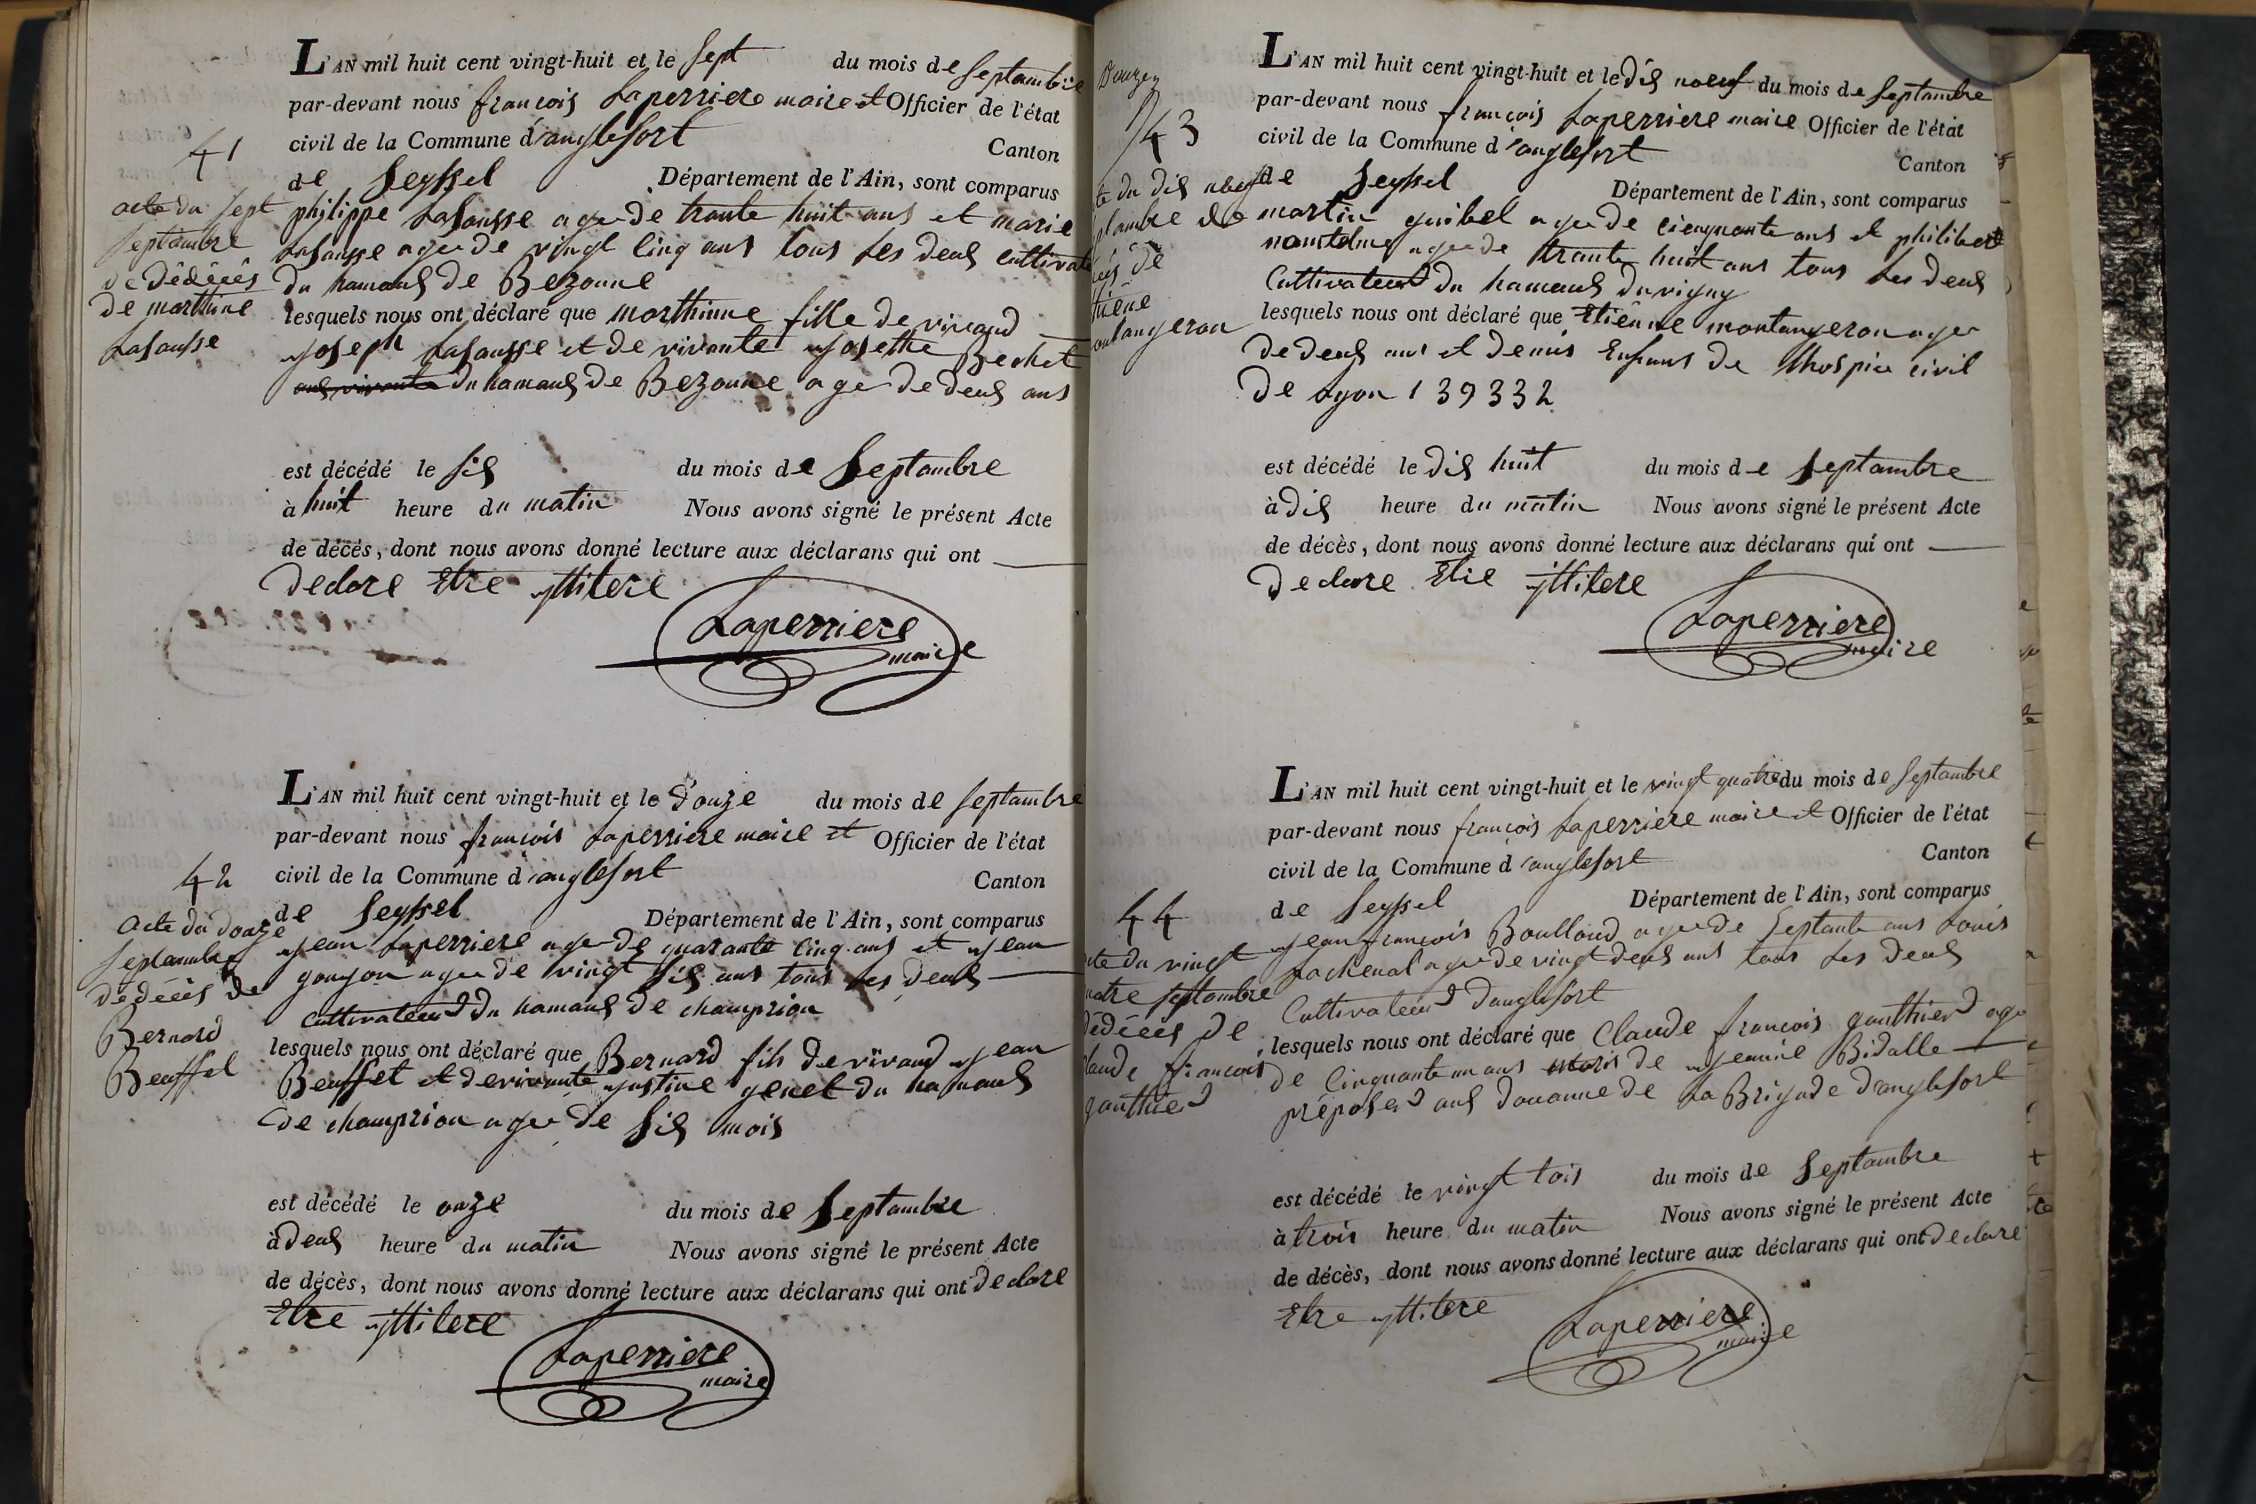 L'AN mil huit cent vingt-huit et le sept du mois de septambre
par-devant nous françois Laperriere maire et Officier de l'état
civil de la Commune d'anglefort Canton
de Seyssel Département de l'Ain, sont comparus
philippe Lasausse agee de trante huit ans et marie
Lasausse agee de vingt cinq ans tous les deus cultivat
du hamaus de Bezonne
lesquels nous ont déclaré que marthinne fille de vivand
joseph Lasausse et de vivante josethe Bechet
du hamaus de Bezonne age de deus ans
est décédé le sis du mois de Septambre
à huit heure du matin Nous avons signé le présent Acte
de décès, dont nous avons donné lecture aux déclarans qui ont
declare Etre yllitere
Laperriere
maire
41
acte du sept
septambre
de dédéces
de marthine
Lasausse
L'AN mil huit cent vingt-huit et le douze du mois de septambre
par-devant nous françois Laperriere maire et Officier de l'état
civil de la Commune d'anglefort Canton
de Seyssel Département de l'Ain, sont comparus
jean Laperriere agee de quarante cinq ans et jean
goujon agee de vingt sis ans tous les deus
cultivateurs du hamaus de champrion
lesquels nous ont déclaré que Bernard fils de vivand jean
Beuffet et de vivante justine genet du hamaus
de champrion agee de sis mois
est décédé le onze du mois de Septambre
à deus heure du matin Nous avons signé le présent Acte
de décès, dont nous avons donné lecture aux déclarans qui ont declare
Etre yllitere
Laperriere
maire
42
acte du douze
septambre
dedécés de
Bernard
Beuffet
L'AN mil huit cent vingt-huit et le dis noeuf du mois de septambre
par-devant nous françois Laperriere maire Officier de l'état
civil de la Commune d'anglefort Canton
de Seyssel Département de l'Ain, sont comparus
martin guibel agee de cinquante ans et philibert
mantelme agee de trante huit ans tous les deus
Cultivateurs du hamaus du vigny
lesquels nous ont déclaré que Etiénne montangeron agee
de deus ans et demis Enfans de Lhospice civil
de Lyon 139332
est décédé le dis huit du mois de septambre
à dis heure du matin Nous avons signé le présent Acte
de décès, dont nous avons donné lecture aux déclarans qui ont
declare Etre yllitere
Laperriere
maire
43
te du dis neuf
ptambre de
cés de
tiéne
ontangeron
L'AN mil huit cent vingt-huit et le vingt quatre du mois de septambre
par-devant nous françois Laperriere maire et Officier de l'état
civil de la Commune d'anglefort Canton
de Seyssel Département de l'Ain, sont comparus
jean françois Boulloud agee de septante ans Louis
Lachenal agee de vingt deus ans tous les deus
Cultivateurs d'anglefort
lesquels nous ont déclaré que Claude françois gauthier age
de Cinquante un ans maris de jennie Bidalle
préposer aus douanne de La Brigade d'anglefort
est décédé le vingt tois du mois de septambre
à trois heure du matin Nous avons signé le présent Acte
de décès, dont nous avons donné lecture aux déclarans qui ont declare
Etre yllitere
Laperriere
maire
44
cte du vingt
uatre septambre
dédéces de
laude françois
gauthier